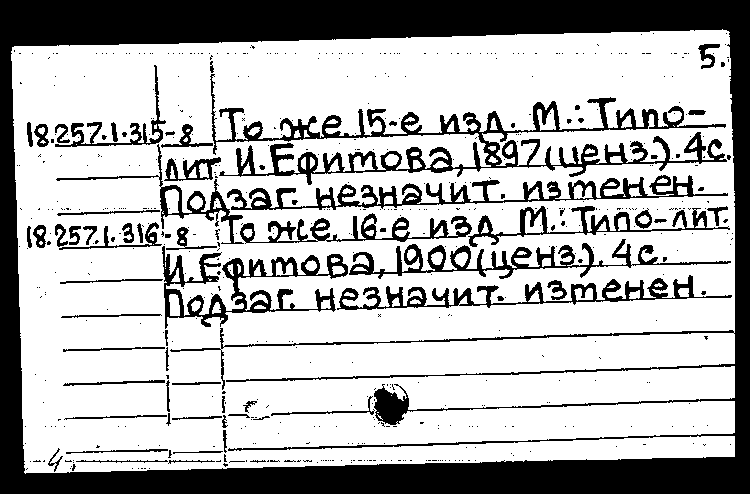 5.
18.257.1.315-8 То же. 15-е изд. М.: Типо-
лит. И. Ефимова, 1897 (ценз.). 4с.
Подзаг. незначит. изменен.
18.257.1.316-8 То же. 16-е изд. М.: Типо-лит.
И. Ефимова, 1900 (ценз.). 4с.
Подзаг. незначит. изменен.
4.